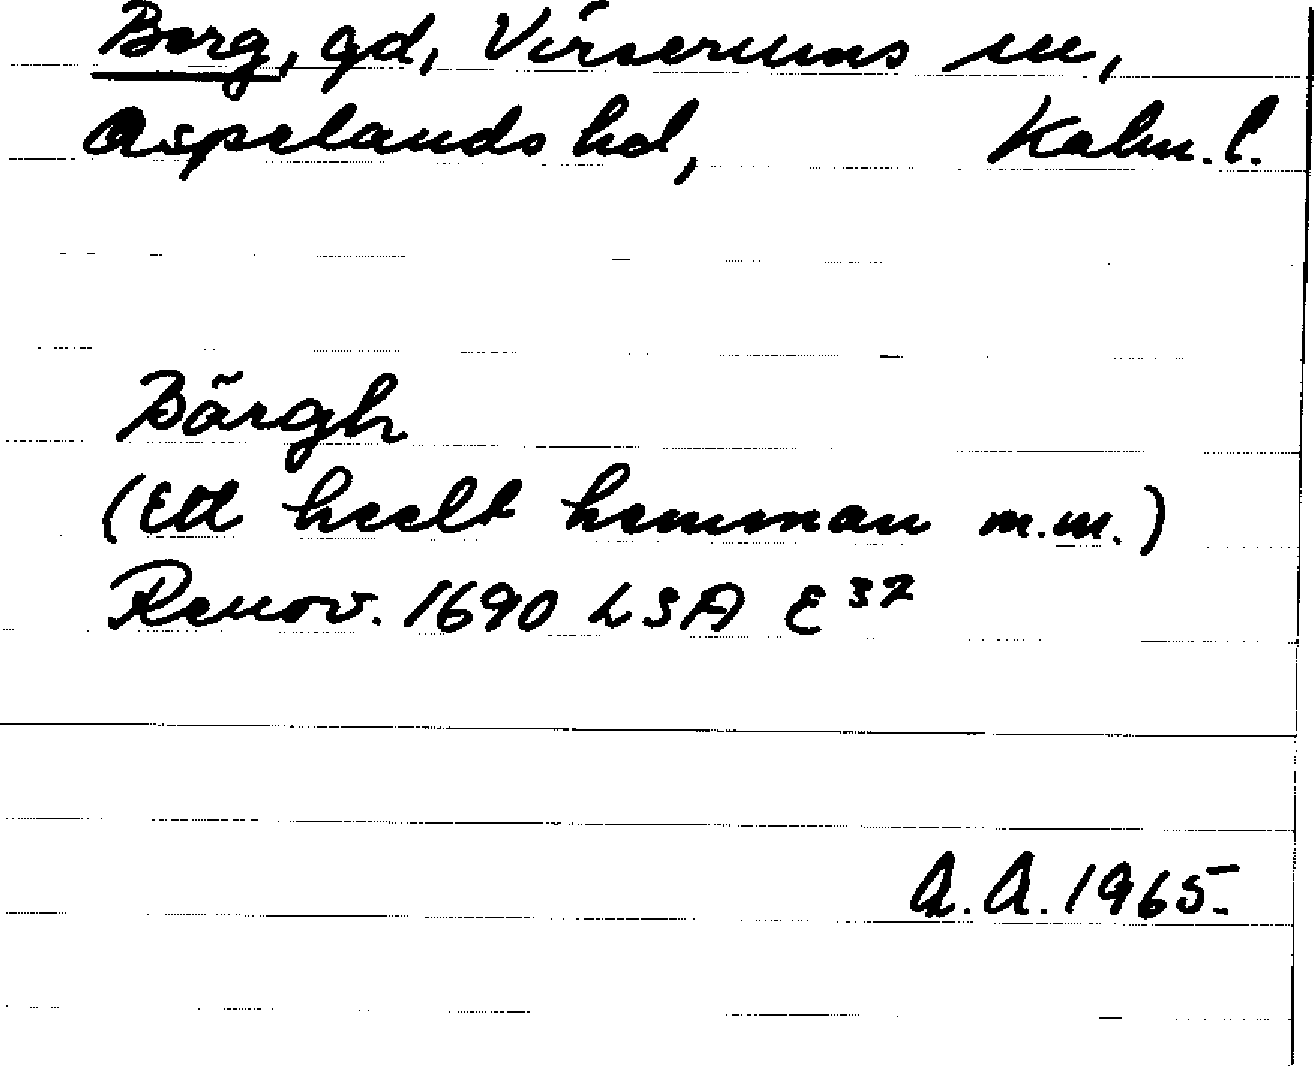 Berg, gd, Virserums sn,
Aspelands hd, Kalm. l.
Bärgh
(Ett heelt hemman m.m.)
Renov. 1690 LSA E 37
A.A. 1965.